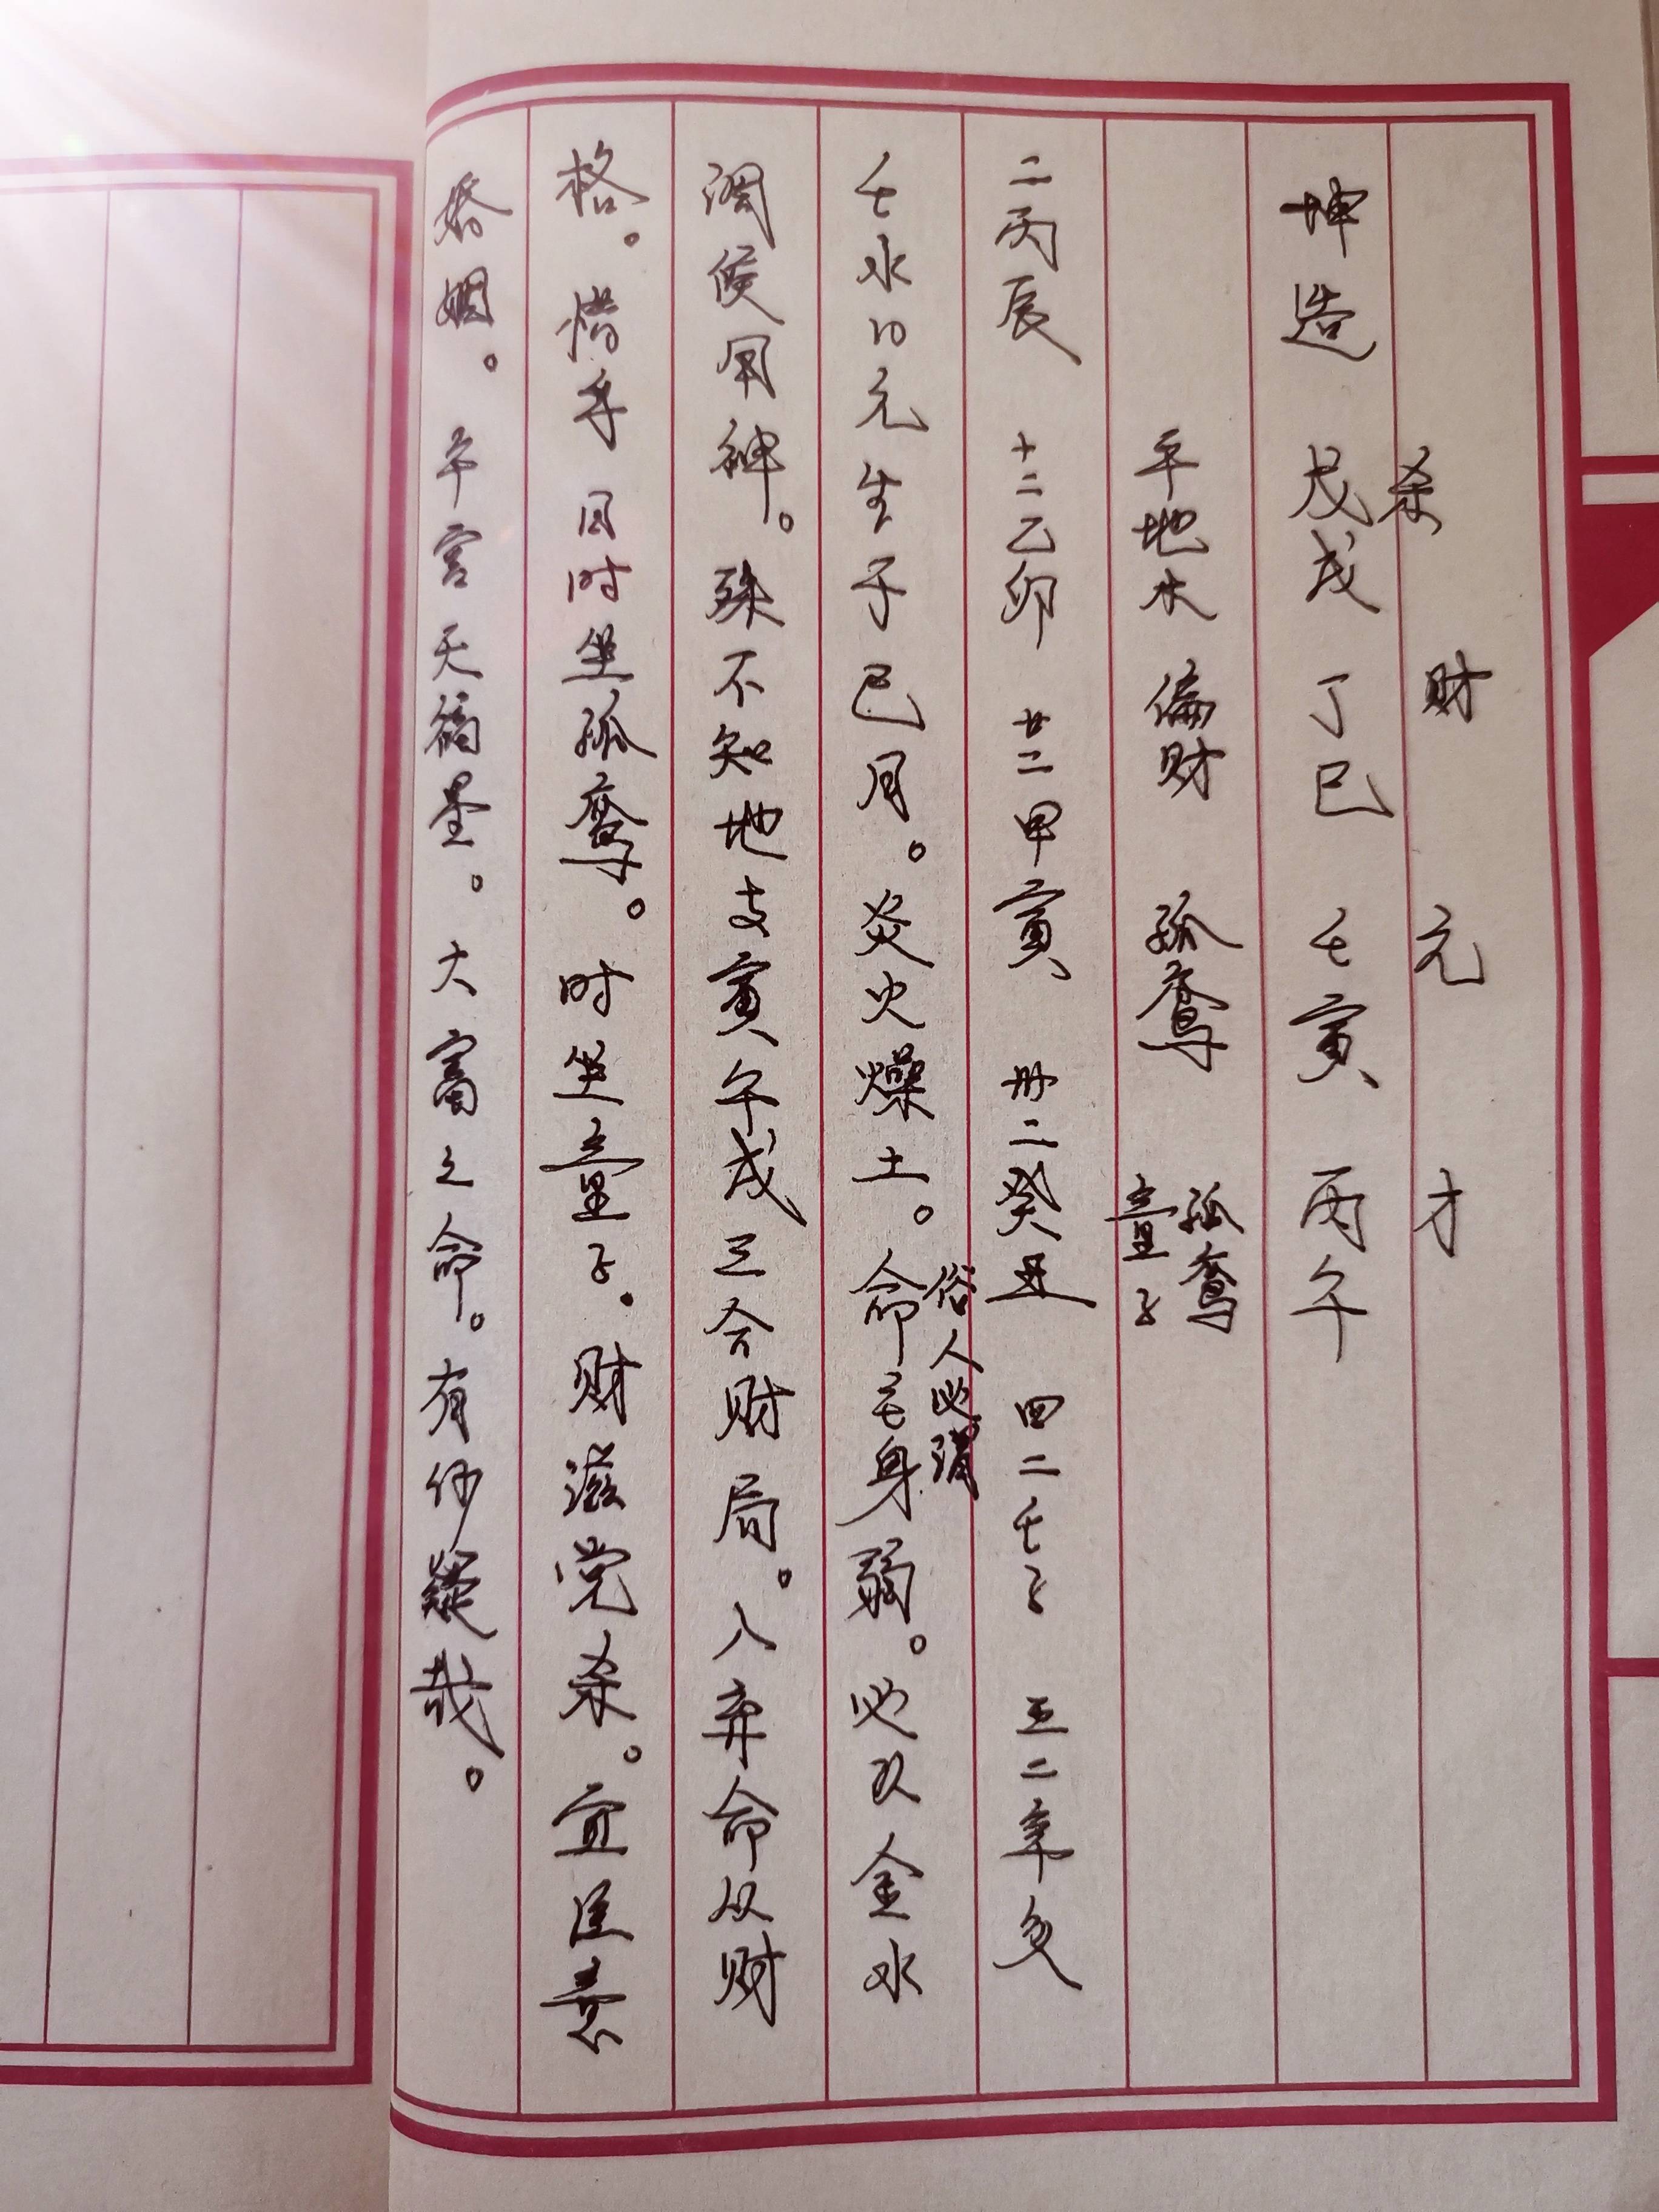 杀 财 元 才
坤造 戊戌 丁巳 壬寅 丙午
平地木 偏财 孤鸾 孤鸾 童子
二丙辰 十二乙卯 廿二甲寅 卅二癸丑 四二壬子 五二辛亥
壬水日元生于巳月。炎火燥土。俗人必谓命主身弱。必以金水
调候用神。殊不知地支寅午戌三合财局。入弃命从财
格。惜乎日时坐孤鸾。时坐童子。财滋党杀。宜注意
婚姻。午宫天福星。大富之命。有何疑哉。